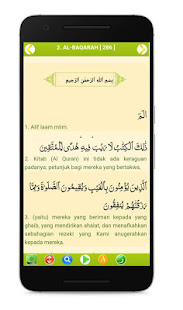 2. AL-BAQARAH [ 286 ]
بِسْمِ اللَّهِ الرَّحْمَٰنِ الرَّحِيمِ
الم
1. Alif laam mim.
ذَٰلِكَ الْكِتَابُ لَا رَيْبَ فِيهِ هُدًى لِلْمُتَّقِينَ
2. Kitab (Al Quran) ini tidak ada keraguan
padanya; petunjuk bagi mereka yang bertakwa,
الَّذِينَ يُؤْمِنُونَ بِالْغَيْبِ وَيُقِيمُونَ الصَّلَاةَ وَمِمَّا
رَزَقْنَاهُمْ يُنْفِقُونَ
3. (yaitu) mereka yang beriman kepada yang
ghaib, yang mendirikan shalat, dan menafkahkan
sebahagian rezeki yang Kami anugerahkan
kepada mereka.